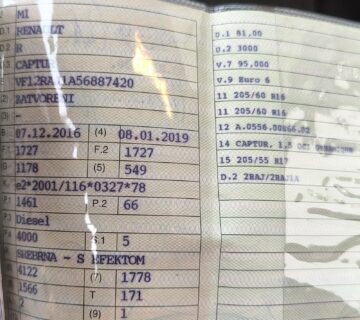 J MI
D.1 RENAULT
R
D.3 CAPTUR
VF12RA11A56887420
(2) ZATVORENI
(3) -
B 07.12.2016 (4) 08.01.2019
F.1 1727 F.2 1727
G 1178 (5) 549
K e2*2001/116*0327*78
P.1 1461 P.2 66
P.3 Diesel
P.4 4000 S.1 5
SREBRNA - S EFEKTOM
4122 (7) 1778
1566 T 171
2 (9) 1
U.1 81,00
U.2 3000
V.7 95,000
V.9 Euro 6
11 205/60 R16
11 205/60 R16
12 A.0556.00866.02
14 CAPTUR, 1,5 DCI
15 205/55 R17
D.2 2RAJ/2RAJ1A